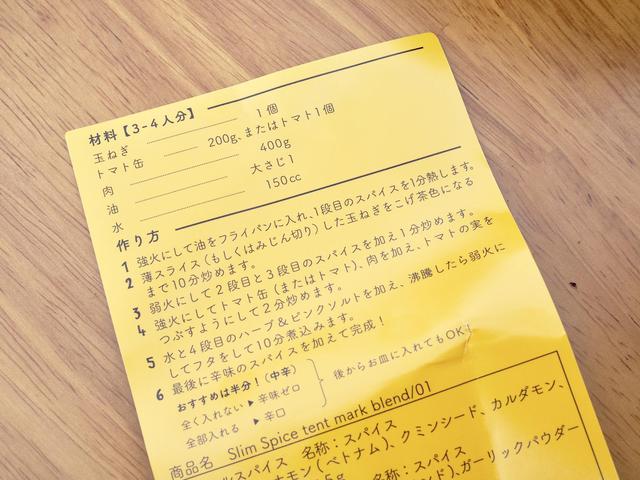 材料【3-4人分】
玉ねぎ 1個
トマト缶 200g、またはトマト1個
肉 400g
油 大さじ1
水 150cc
作り方
1 強火にして油をフライパンに入れ、1段目のスパイスを1分熱します。
2 薄スライス(もしくはみじん切り)した玉ねぎをこげ茶色になる
まで10分炒めます。
3 弱火にして2段目と3段目のスパイスを加え1分炒めます。
4 強火にしてトマト缶(またはトマト)、肉を加え、トマトの実を
つぶすようにして2分炒めます。
5 水と4段目のハーブ&ピンクソルトを加え、沸騰したら弱火に
してフタをして10分煮込みます。
6 最後に辛味のスパイスを加えて完成!
おすすめは半分!(中辛)
全く入れない ▶ 辛味ゼロ
全部入れる ▶ 辛口
後からお皿に入れてもOK!
商品名 Slim Spice tent mark blend/01
スパイス 名称:スパイス
モン(ベトナム)、クミンシード、カルダモン、
5g 名称:スパイス
ンド)、ガーリックパウダー